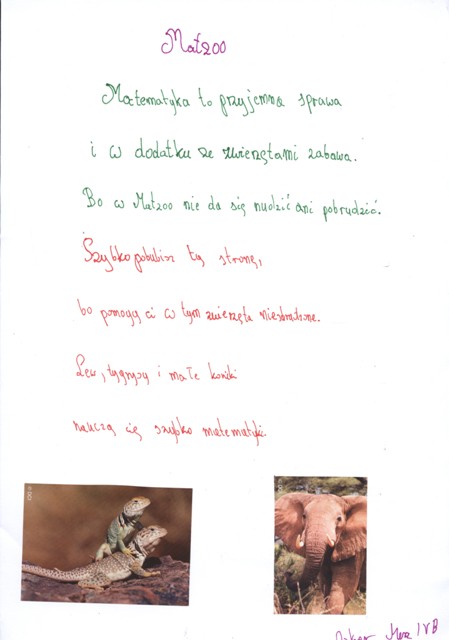 Matzoo
Matematyka to przyjemna sprawa
i w dodatku ze zwierzętami zabawa.
Bo w Matzoo nie da się nudzić ani pobrudzić.
Szybko polubisz tę stronę,
bo pomogą ci w tym zwierzęta niezbrudzone.
Lew, tygrysy i małe koniki
nauczą cię szybko matematyki.
IV B